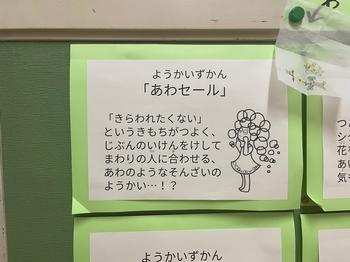 ようかいずかん
「あわセール」
「きらわれたくない」
というきもちがつよく、
じぶんのいけんをけして
まわりの人に合わせる、
あわのようなそんざいの
ようかい…！？
ようかいずかん